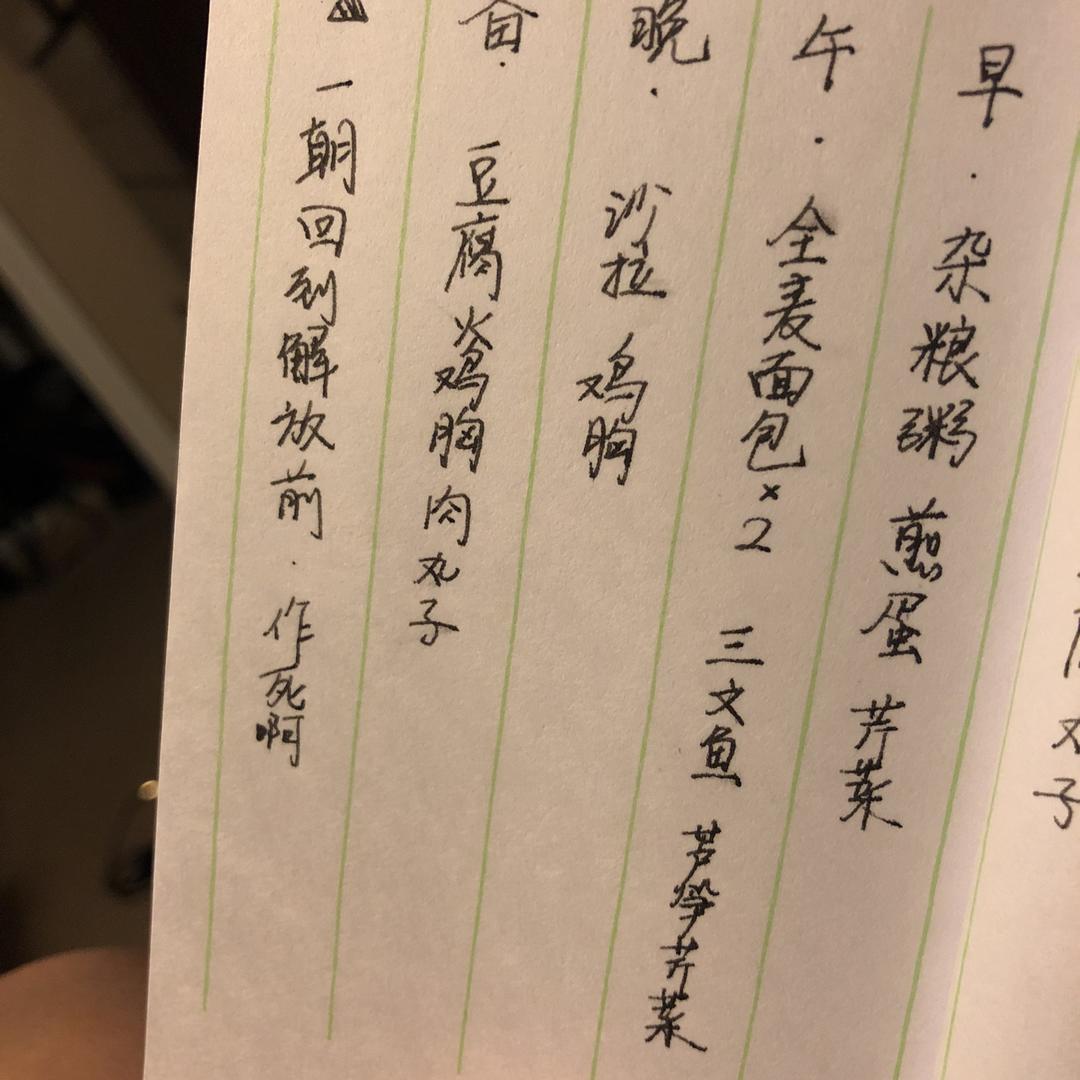 子
早·杂粮粥 煎蛋 芹菜
午·全麦面包×2 三文鱼 芦笋芹菜
晚·沙拉 鸡胸
豆腐火鸡胸肉丸子
一朝回到解放前·作死啊